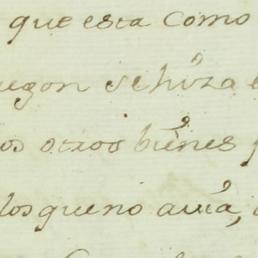 que esta como
se hiza
os otros bienes
los que no avia,